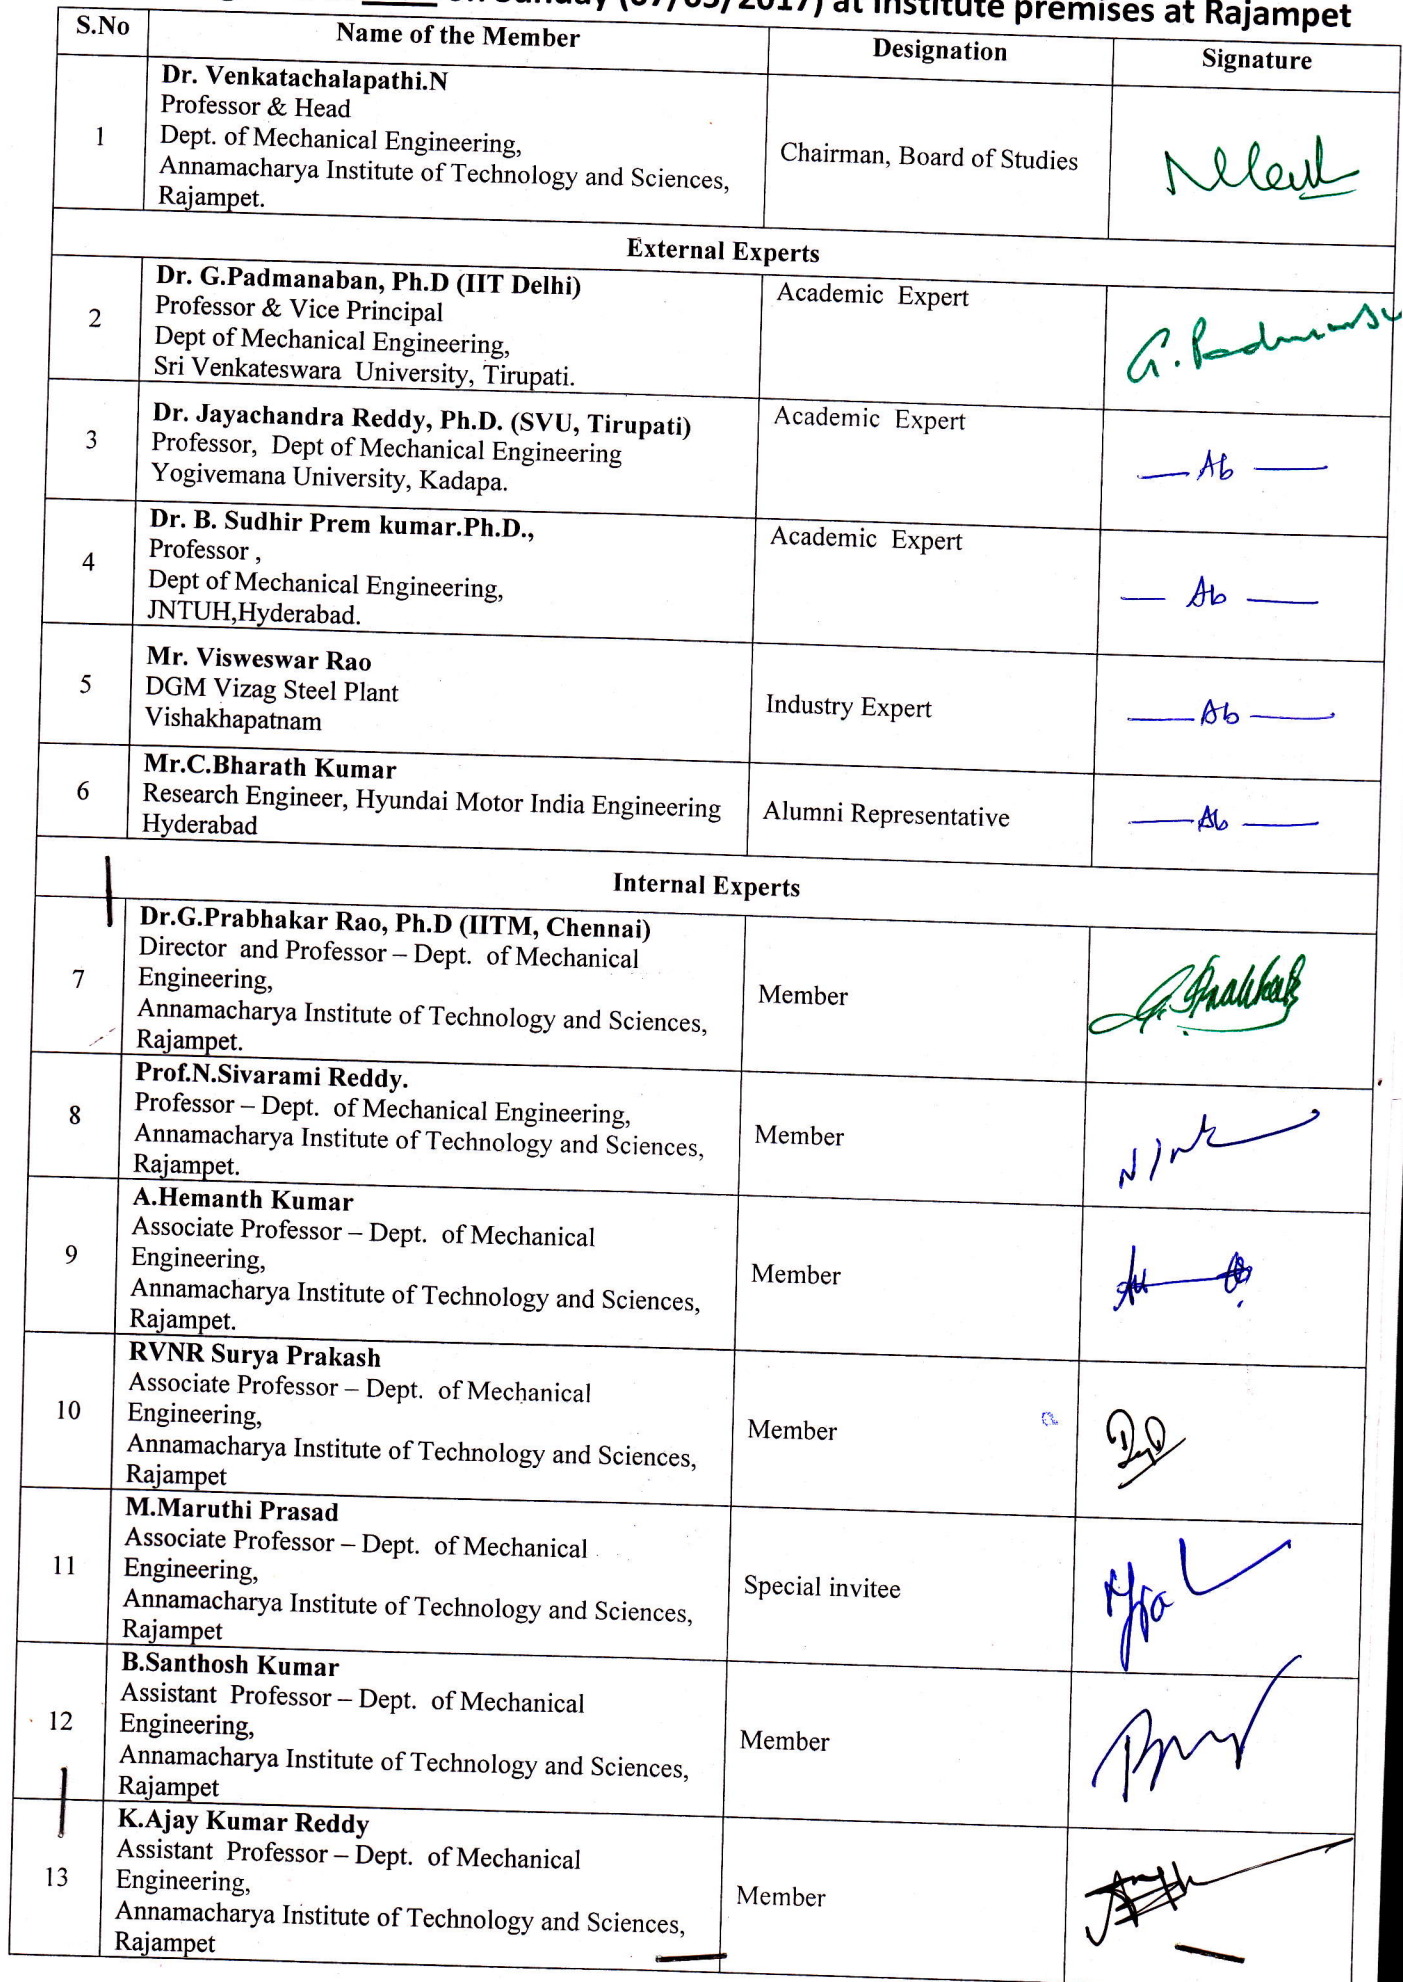 on Sunday (07/05/2017) at Institute premises at Rajampet
S.No Name of the Member Designation Signature
1
Dr. Venkatachalapathi.N
Professor & Head
Dept. of Mechanical Engineering,
Annamacharya Institute of Technology and Sciences,
Rajampet.
Chairman, Board of Studies
External Experts
2
Dr. G.Padmanaban, Ph.D (IIT Delhi)
Professor & Vice Principal
Dept of Mechanical Engineering,
Sri Venkateswara University, Tirupati.
Academic Expert
3
Dr. Jayachandra Reddy, Ph.D. (SVU, Tirupati)
Professor, Dept of Mechanical Engineering
Yogivemana University, Kadapa.
Academic Expert
— Ab —
4
Dr. B. Sudhir Prem kumar.Ph.D.,
Professor ,
Dept of Mechanical Engineering,
JNTUH,Hyderabad.
Academic Expert
— Ab —
5
Mr. Visweswar Rao
DGM Vizag Steel Plant
Vishakhapatnam
Industry Expert
— Ab —
6
Mr.C.Bharath Kumar
Research Engineer, Hyundai Motor India Engineering
Hyderabad
Alumni Representative
— Ab —
Internal Experts
7
Dr.G.Prabhakar Rao, Ph.D (IITM, Chennai)
Director and Professor – Dept. of Mechanical
Engineering,
Annamacharya Institute of Technology and Sciences,
Rajampet.
Member
8
Prof.N.Sivarami Reddy.
Professor – Dept. of Mechanical Engineering,
Annamacharya Institute of Technology and Sciences,
Rajampet.
Member
9
A.Hemanth Kumar
Associate Professor – Dept. of Mechanical
Engineering,
Annamacharya Institute of Technology and Sciences,
Rajampet.
Member
10
RVNR Surya Prakash
Associate Professor – Dept. of Mechanical
Engineering,
Annamacharya Institute of Technology and Sciences,
Rajampet
Member
11
M.Maruthi Prasad
Associate Professor – Dept. of Mechanical
Engineering,
Annamacharya Institute of Technology and Sciences,
Rajampet
Special invitee
12
B.Santhosh Kumar
Assistant Professor – Dept. of Mechanical
Engineering,
Annamacharya Institute of Technology and Sciences,
Rajampet
Member
13
K.Ajay Kumar Reddy
Assistant Professor – Dept. of Mechanical
Engineering,
Annamacharya Institute of Technology and Sciences,
Rajampet
Member